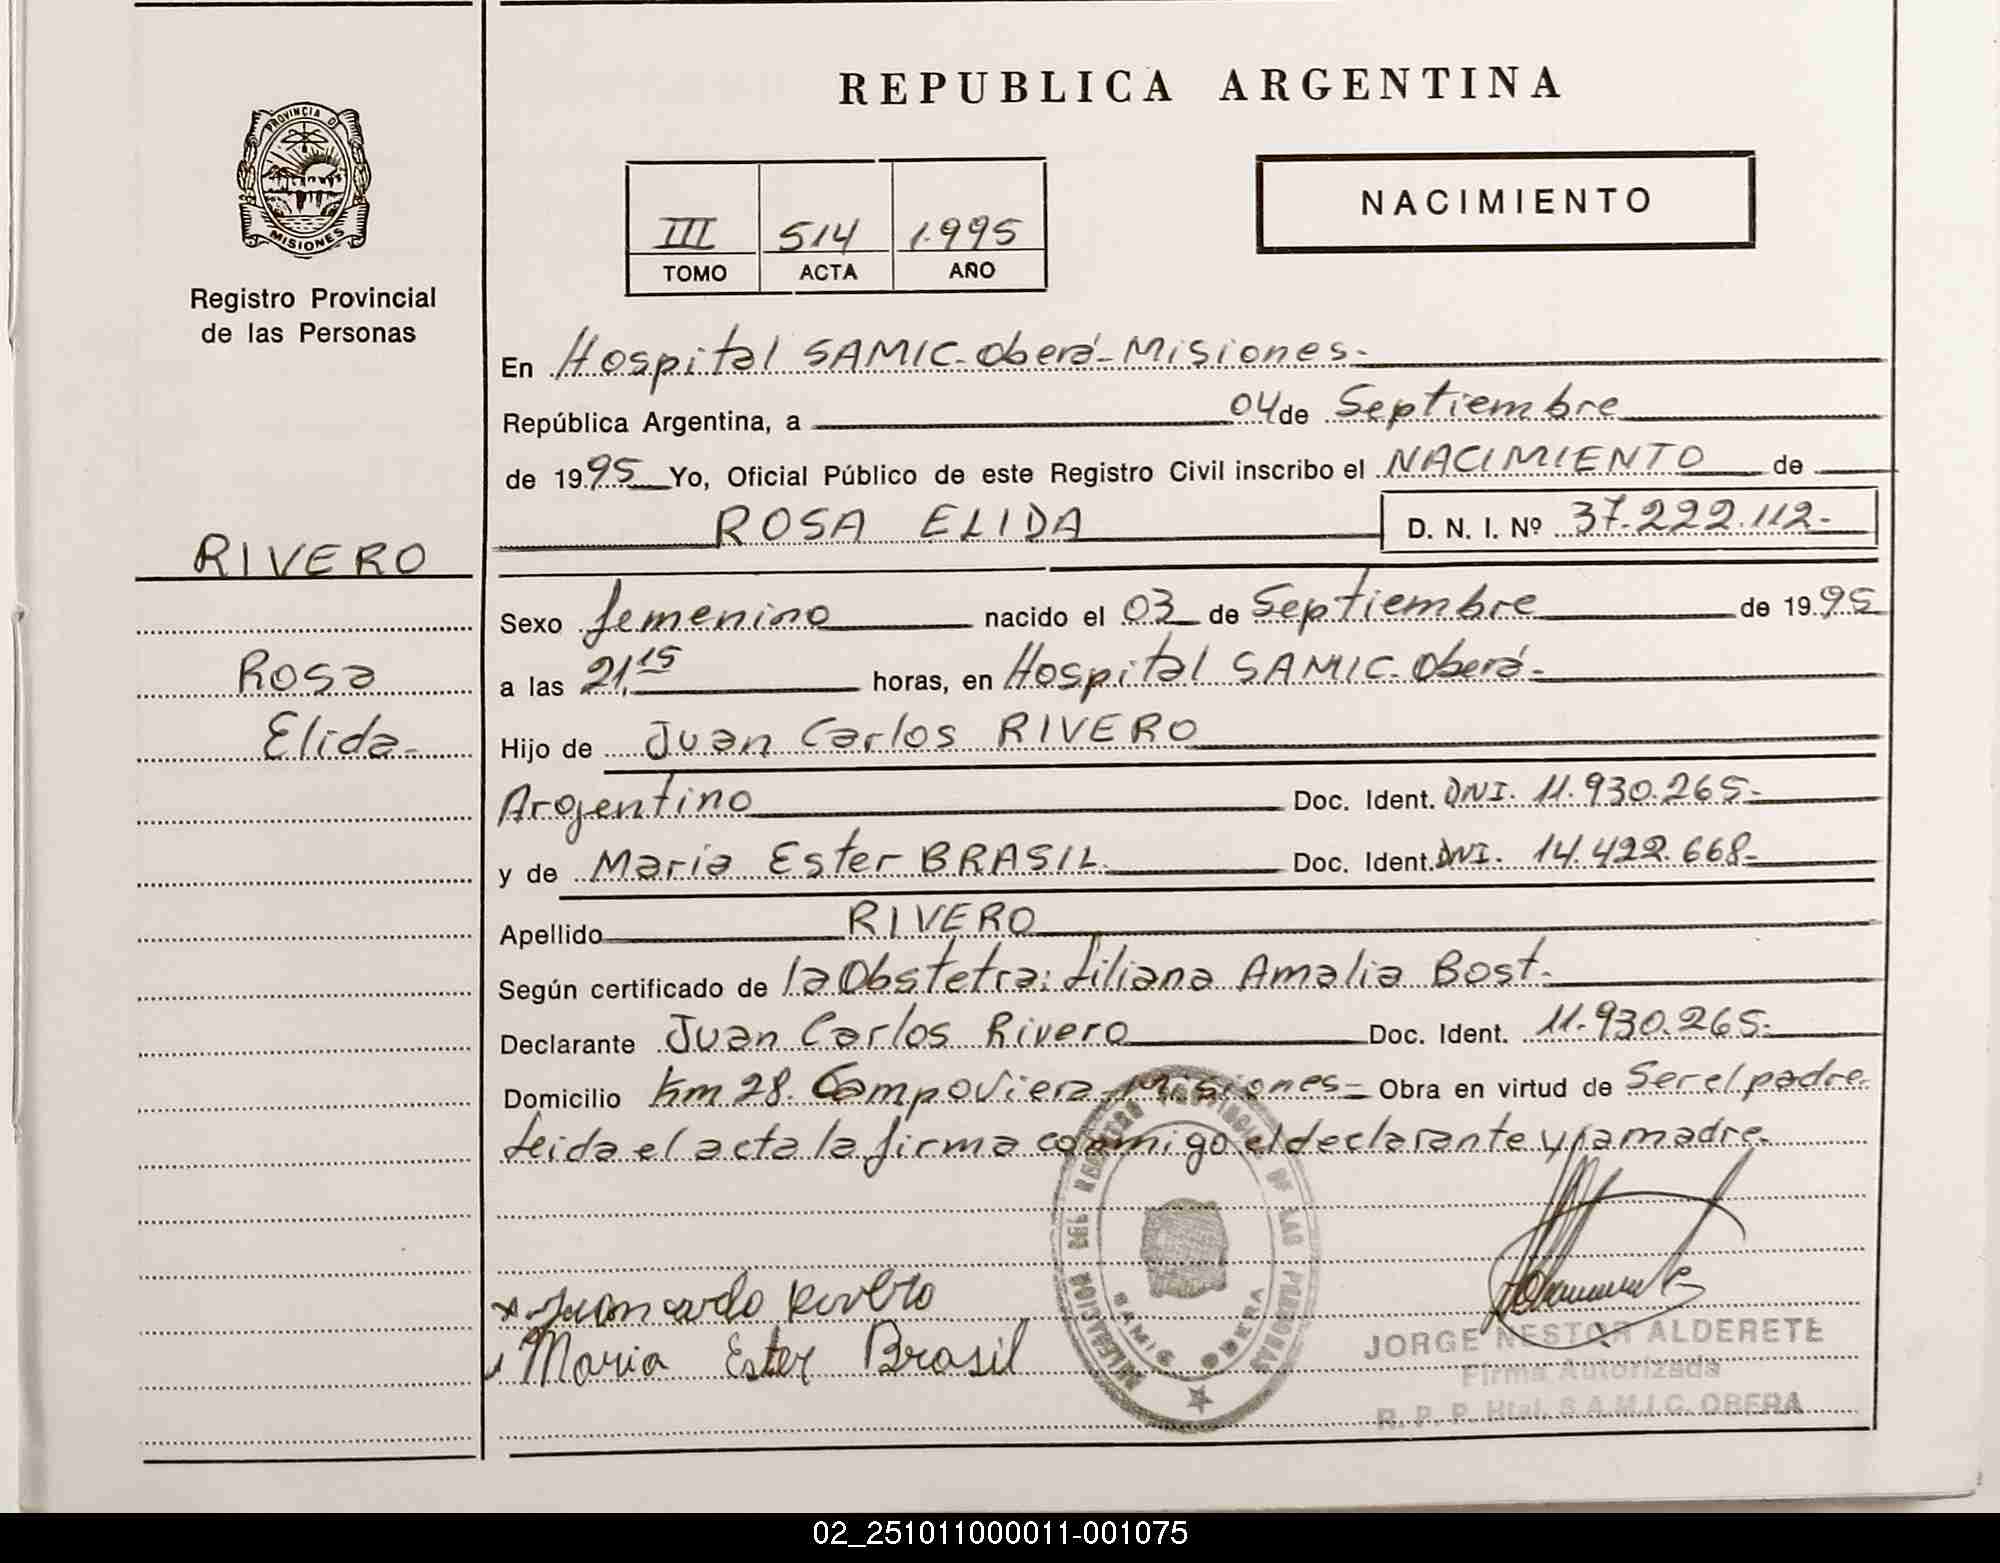 REPUBLICA ARGENTINA
PROVINCIA D
MISIONES
Registro Provincial
de las Personas
NACIMIENTO
III 514 1.995
TOMO ACTA AÑO
En Hospital SAMIC-Oberá-Misiones-
República Argentina, a 04 de Septiembre
de 1995 Yo, Oficial Público de este Registro Civil inscribo el NACIMIENTO de
ROSA ELIDA D. N. I. Nº 37.222.112-
RIVERO
Rosa
Elida-
Sexo femenino nacido el 03 de Septiembre de 1995
a las 21,15 horas, en Hospital SAMIC-Oberá-
Hijo de Juan Carlos RIVERO
Argentino Doc. Ident. DNI. 11.930.265-
y de Maria Ester BRASIL Doc. Ident. DNI. 14.422.668-
Apellido RIVERO
Según certificado de la Obstetra: Liliana Amalia Bost-
Declarante Juan Carlos Rivero Doc. Ident. 11.930.265-
Domicilio Km 28. Campo Viera-Misiones- Obra en virtud de Ser el padre.
Leida el acta la firma conmigo el declarante y la madre.
DELEGACION DEL REGISTRO PROVINCIAL DE LAS PERSONAS
SAMIC OBERA
Maria Ester Brasil
JORGE NESTOR ALDERETE
Firma Autorizada
R. P. P. Htal. S.A.M.I.C. OBERA
02_251011000011-001075